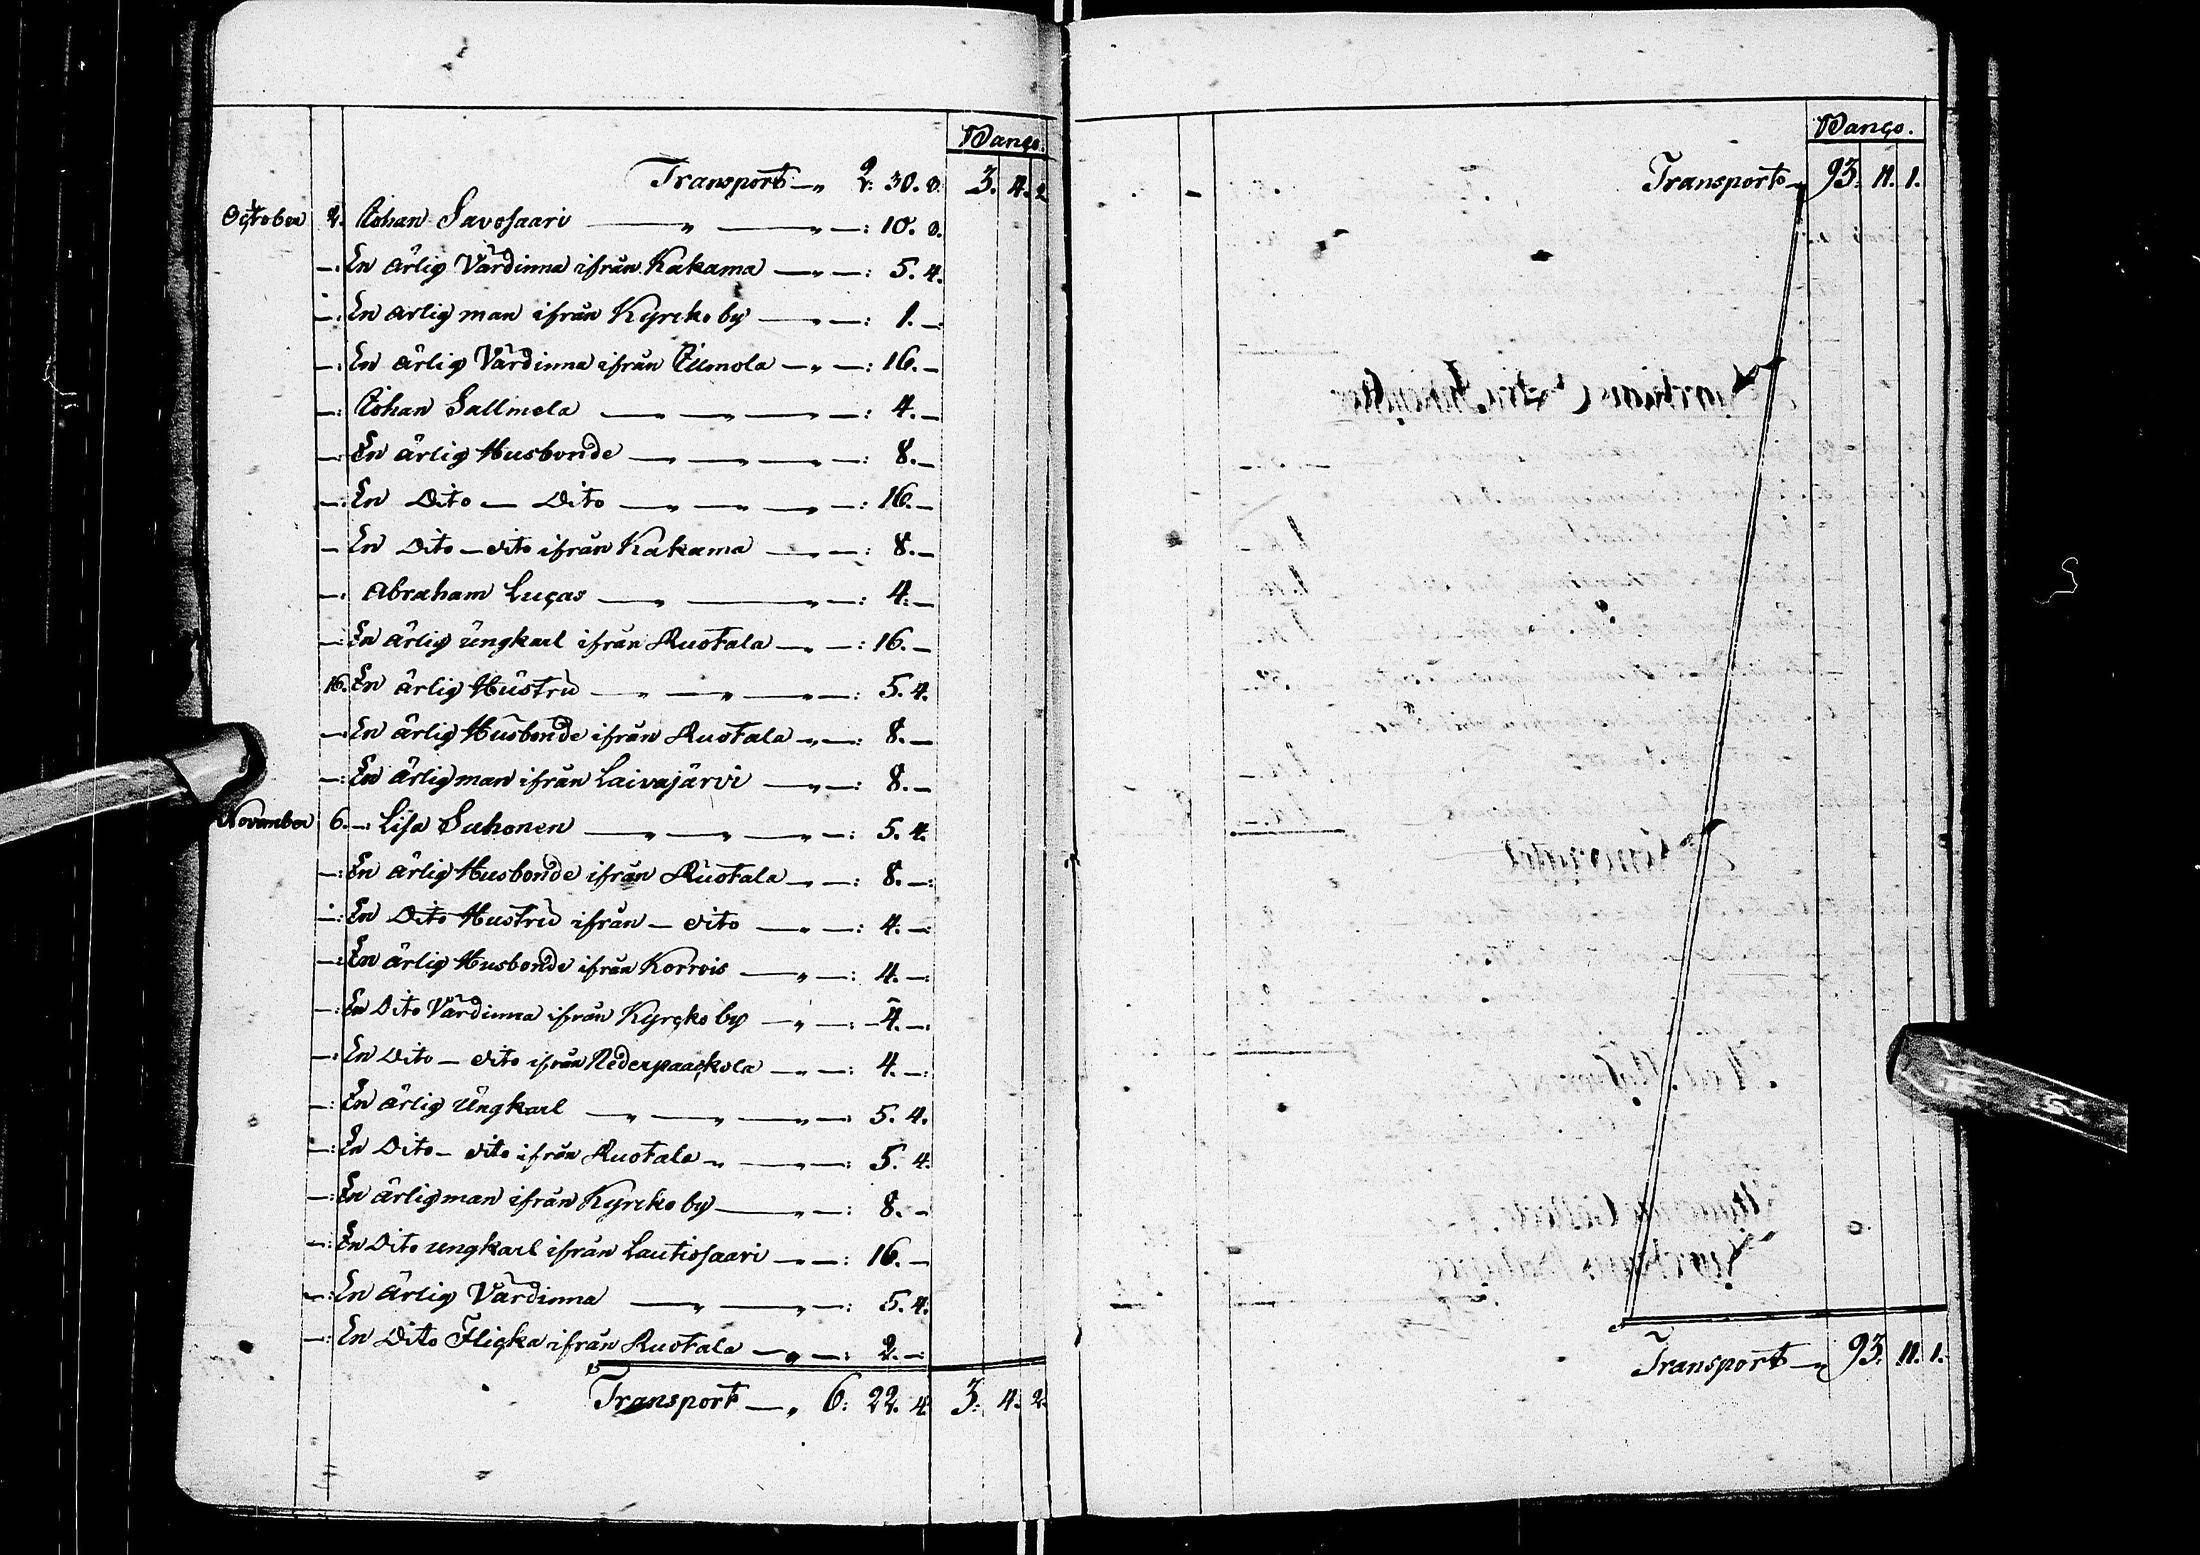 Banço.
Transport 2: 30. 8. 3. 4. 2
October 2. Johan Savosaari 10. 8.
En ärlig Värdinna ifrån Kakama 5. 4.
En ärlig man ifrån Kyrckoby 1.
En ärlig Värdinna ifrån 16.
Johan Sallmela 4.
En ärlig Husbonde 8.
En Dito Dito 16.
En Dito dito ifrån Kakama 8.
Abraham Luças 4.
En ärlig ungkarl ifrån Ruotala 16.
16. En ärlig Hustru 5. 4.
En ärlig Husbonde ifrån Ruotala 8.
En ärlig man ifrån Laivajärvi 8.
November 6. Lisa Suhonen 5. 4.
En ärlig Husbonde ifrån Ruotala 8.
En Dito Hustru ifrån dito 4.
En ärlig Husbonde ifrån Korrois 4.
En Dito Värdinna ifrån Kyrçkoby 4.
En Dito dito ifrån Nederpaackola 4.
En ärlig Ungkarl 5. 4.
En Dito dito ifrån Ruotala 5. 4.
En ärlig man ifrån Kyrckoby 8.
En Dito ungkarl ifrån Lautiosaari 16.
En ärlig Värdinna 5. 4.
En Dito Fliçka ifrån Ruotala 2.
Transport 6: 22. 4. 3: 4. 2.
Banço.
Transport 93: 11. 1.
Transport 93. 11. 1.